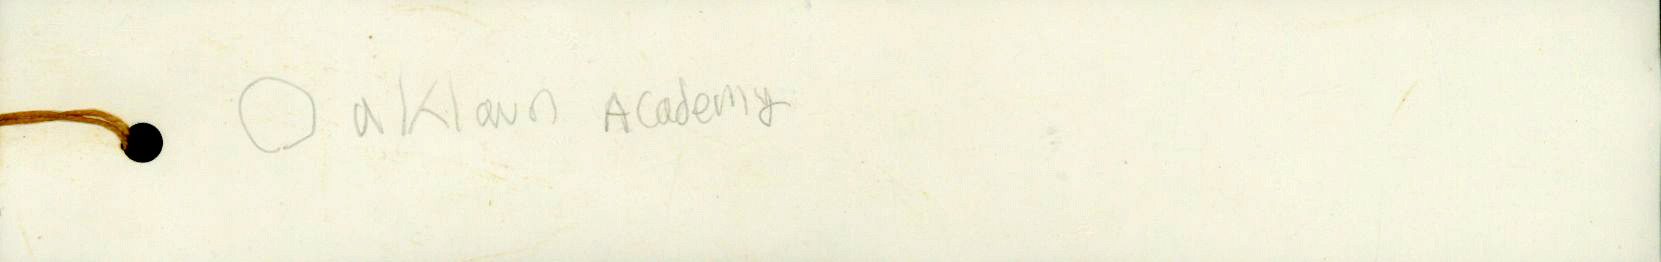 Oaklawn Academy